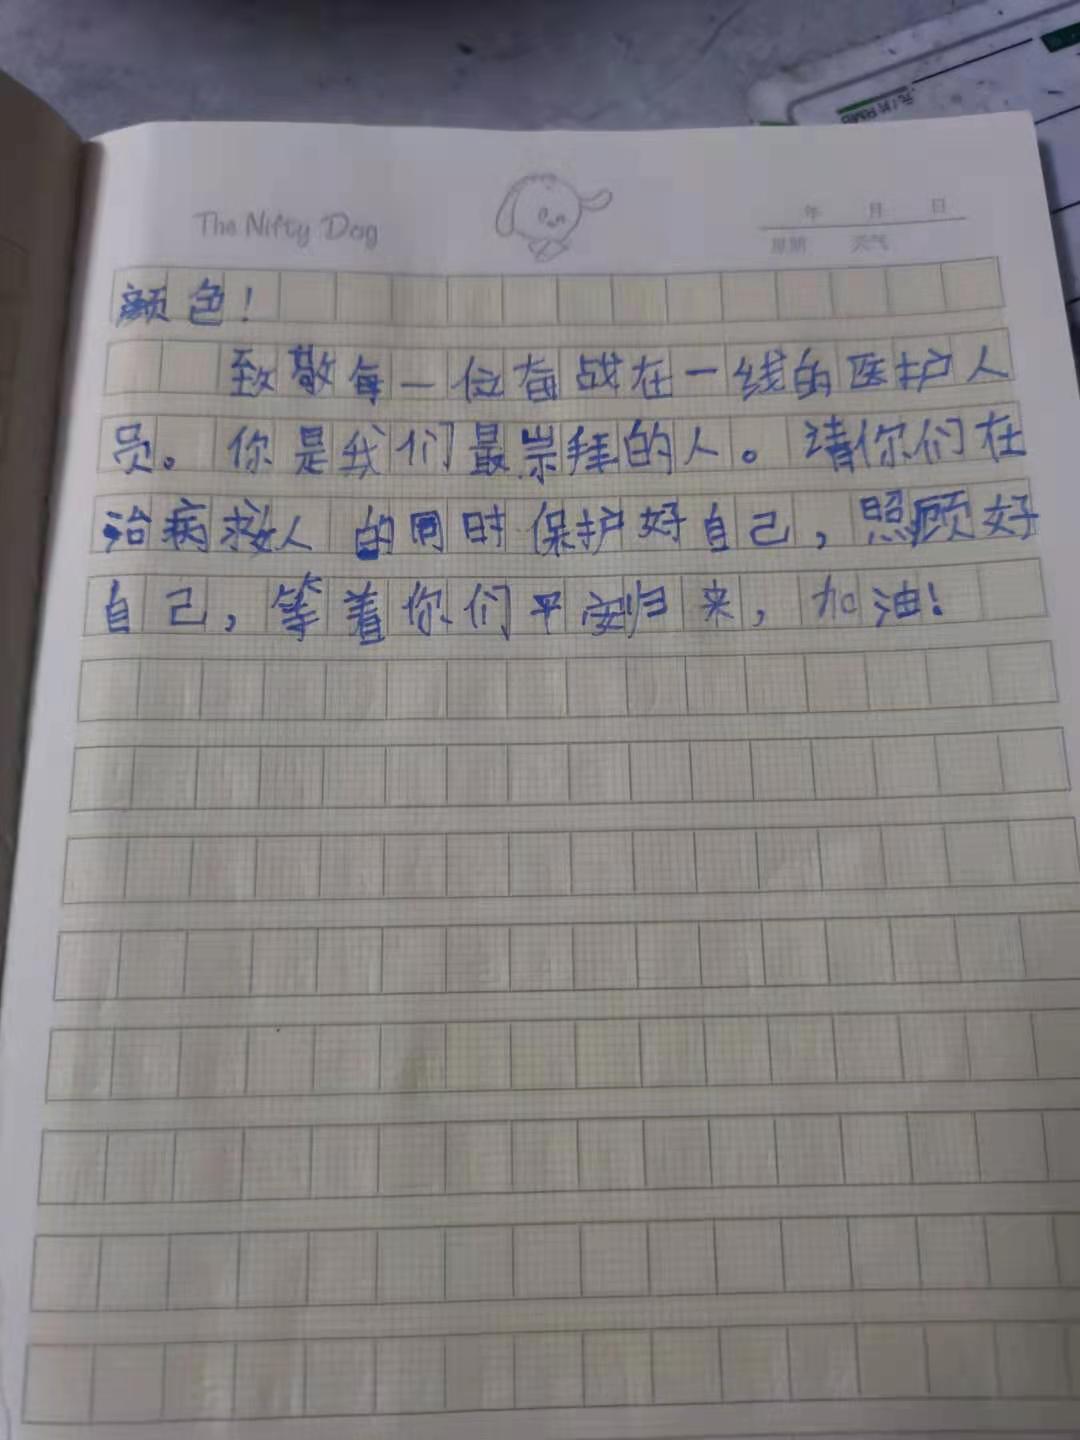 The Nifty Dog
年 月 日
星期 天气
颜色！
致敬每一位奋战在一线的医护人
员。你是我们最崇拜的人。请你们在
治病救人的同时保护好自己，照顾好
自己，等着你们平安归来，加油！
元/月RMB